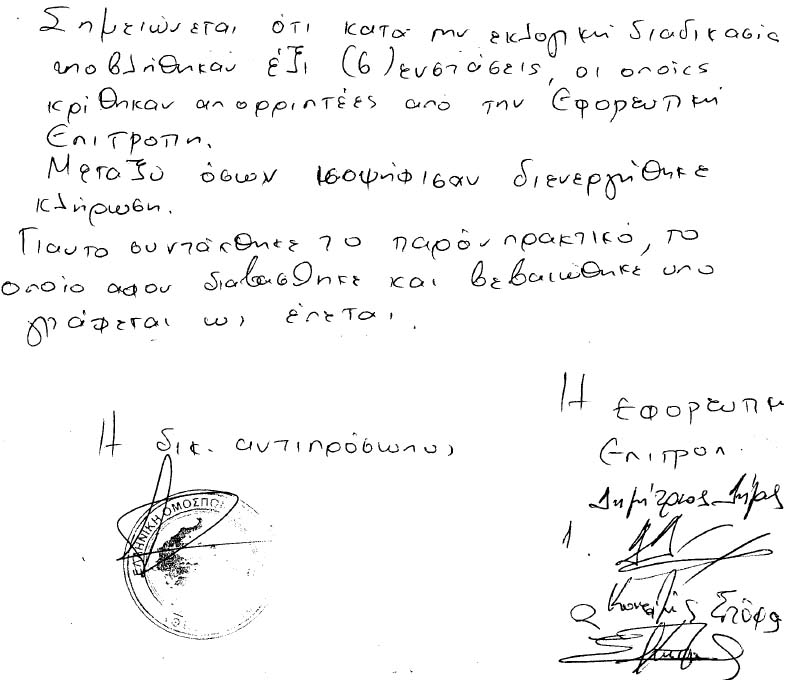 Σημειώνεται ότι κατά την εκλογική διαδικασία
υποβλήθηκαν έξι (6) ενστάσεις, οι οποίες
κρίθηκαν απορριπτέες από την Εφορευτική
Επιτροπή.
Μεταξύ όσων ισοψήφισαν διενεργήθηκε
κλήρωση.
Γιαυτο συντάχθηκε το παρόν πρακτικό, το
οποίο αφου διαβάσθηκε και βεβαιώθηκε υπο
γράφεται ως έπεται.
Η Εφορευτικ
Η δικ. αντιπρόσωπος
Επιτροπ.
Δημήτριος
ΕΛΛΗΝΙΚΗ ΟΜΟΣΠΟ
1.
2